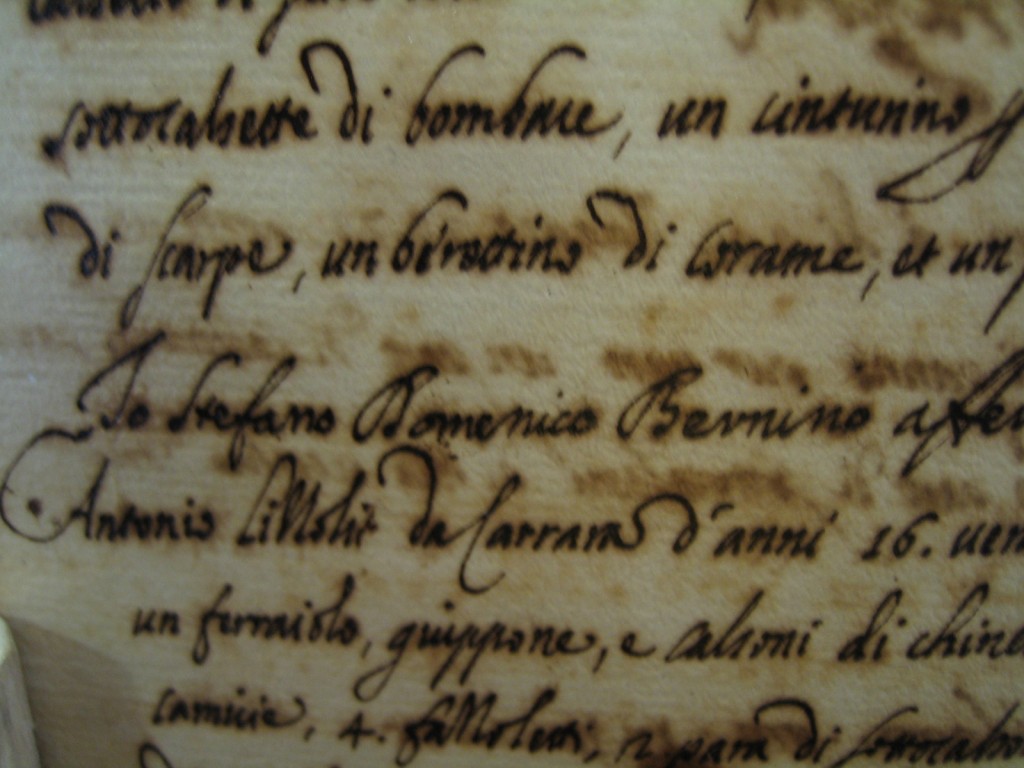 sottocalsette di bombace, un cinturino
di scarpe, un berettino di Corame, et un
Io Stefano Domenico Bernino affer
Antonio da Carrara d'anni 16. ven
un ferraiolo, giuppone, e calzoni di
camicie, 4. fazzoletti, 2 para di sottocalse